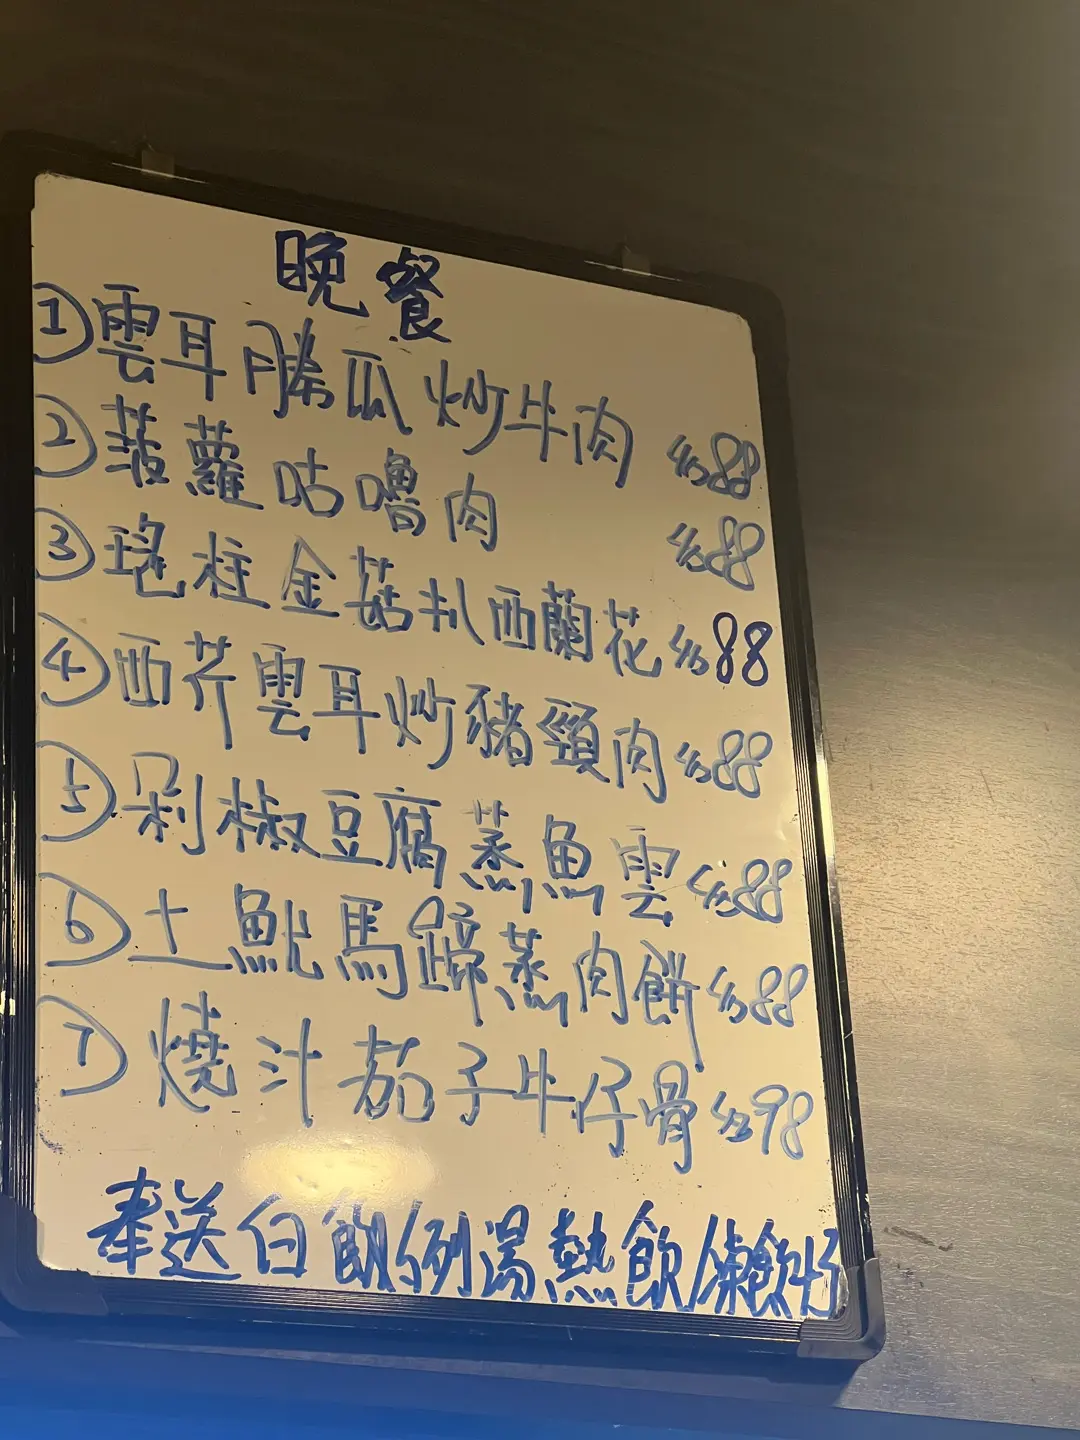 晚餐
①雲耳勝瓜炒牛肉 $88
②菠蘿咕嚕肉 $88
③瑤柱金菇扒西蘭花 $88
④西芹雲耳炒豬頸肉 $88
⑤剁椒豆腐蒸魚雲 $88
⑥土魷馬蹄蒸肉餅 $88
⑦燒汁茄子牛仔骨 $98
奉送白飯例湯熱飲/凍飲+3